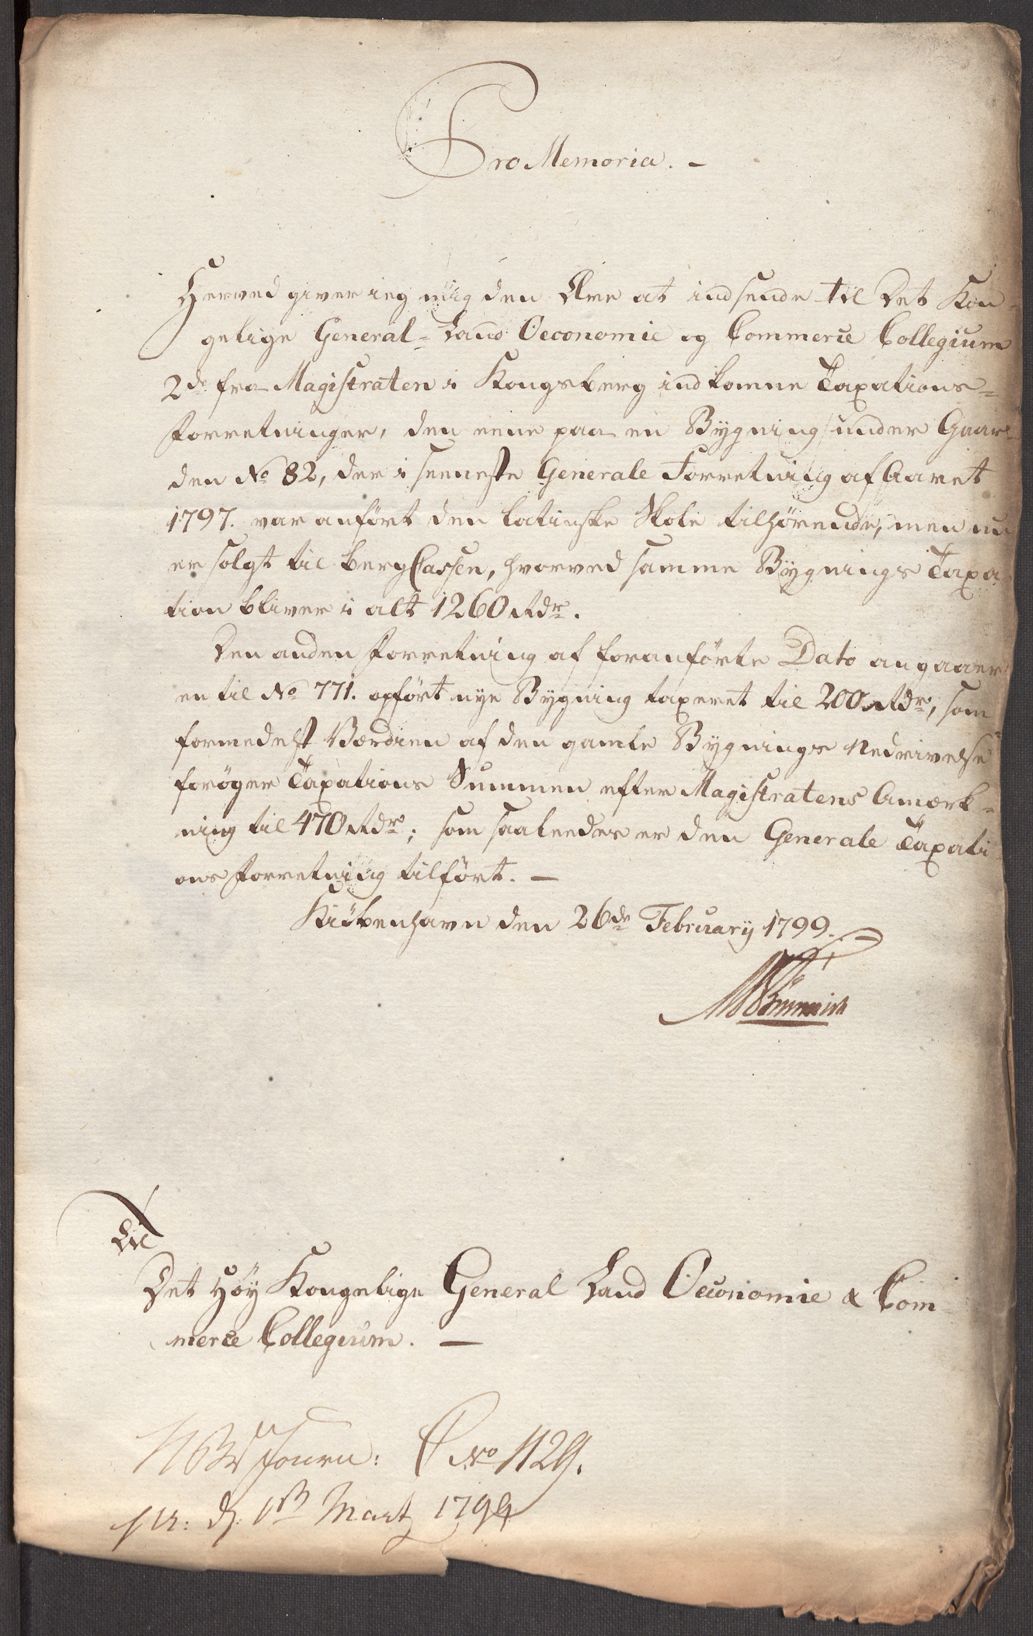 Pro Memoria. –
Herved giver ieg mig den Ære at indsende til Det Kon-
gelige General-Land Oeconomie og Commerce Collegium
2de fra Magistraten i Kongsberg indkomne Taxations-
forretninger, den eene paa en Bygning under Gaar-
den No 82, der i seeneste Generale Forretning af Aaret
1797. var anført den latinske Skole tilhørende, men nu
er solgt til Berg Cassen, hvorved samme Bygnings Taxa-
tion bliver i alt 1260 Rdr.
Den anden Forretning af foranførte Dato angaaer
en til No 771. opført nye Bygning taxeret til 200 Rdr, som
formedelst Værdien af den gamle Bygnings Nedrivelse
forøger Taxations Summen efter Magistratens Anmærk-
ning til 470 Rdr; som saaledes er den Generale Taxati-
ons Forretning tilført. –
Kiöbenhavn den 26de February 1799.
Til
Det Høy Kongelige General Land Oeconomie & Com-
merce Collegium. –
Journ: No 1129.
pr: d. 1st Marty 1799